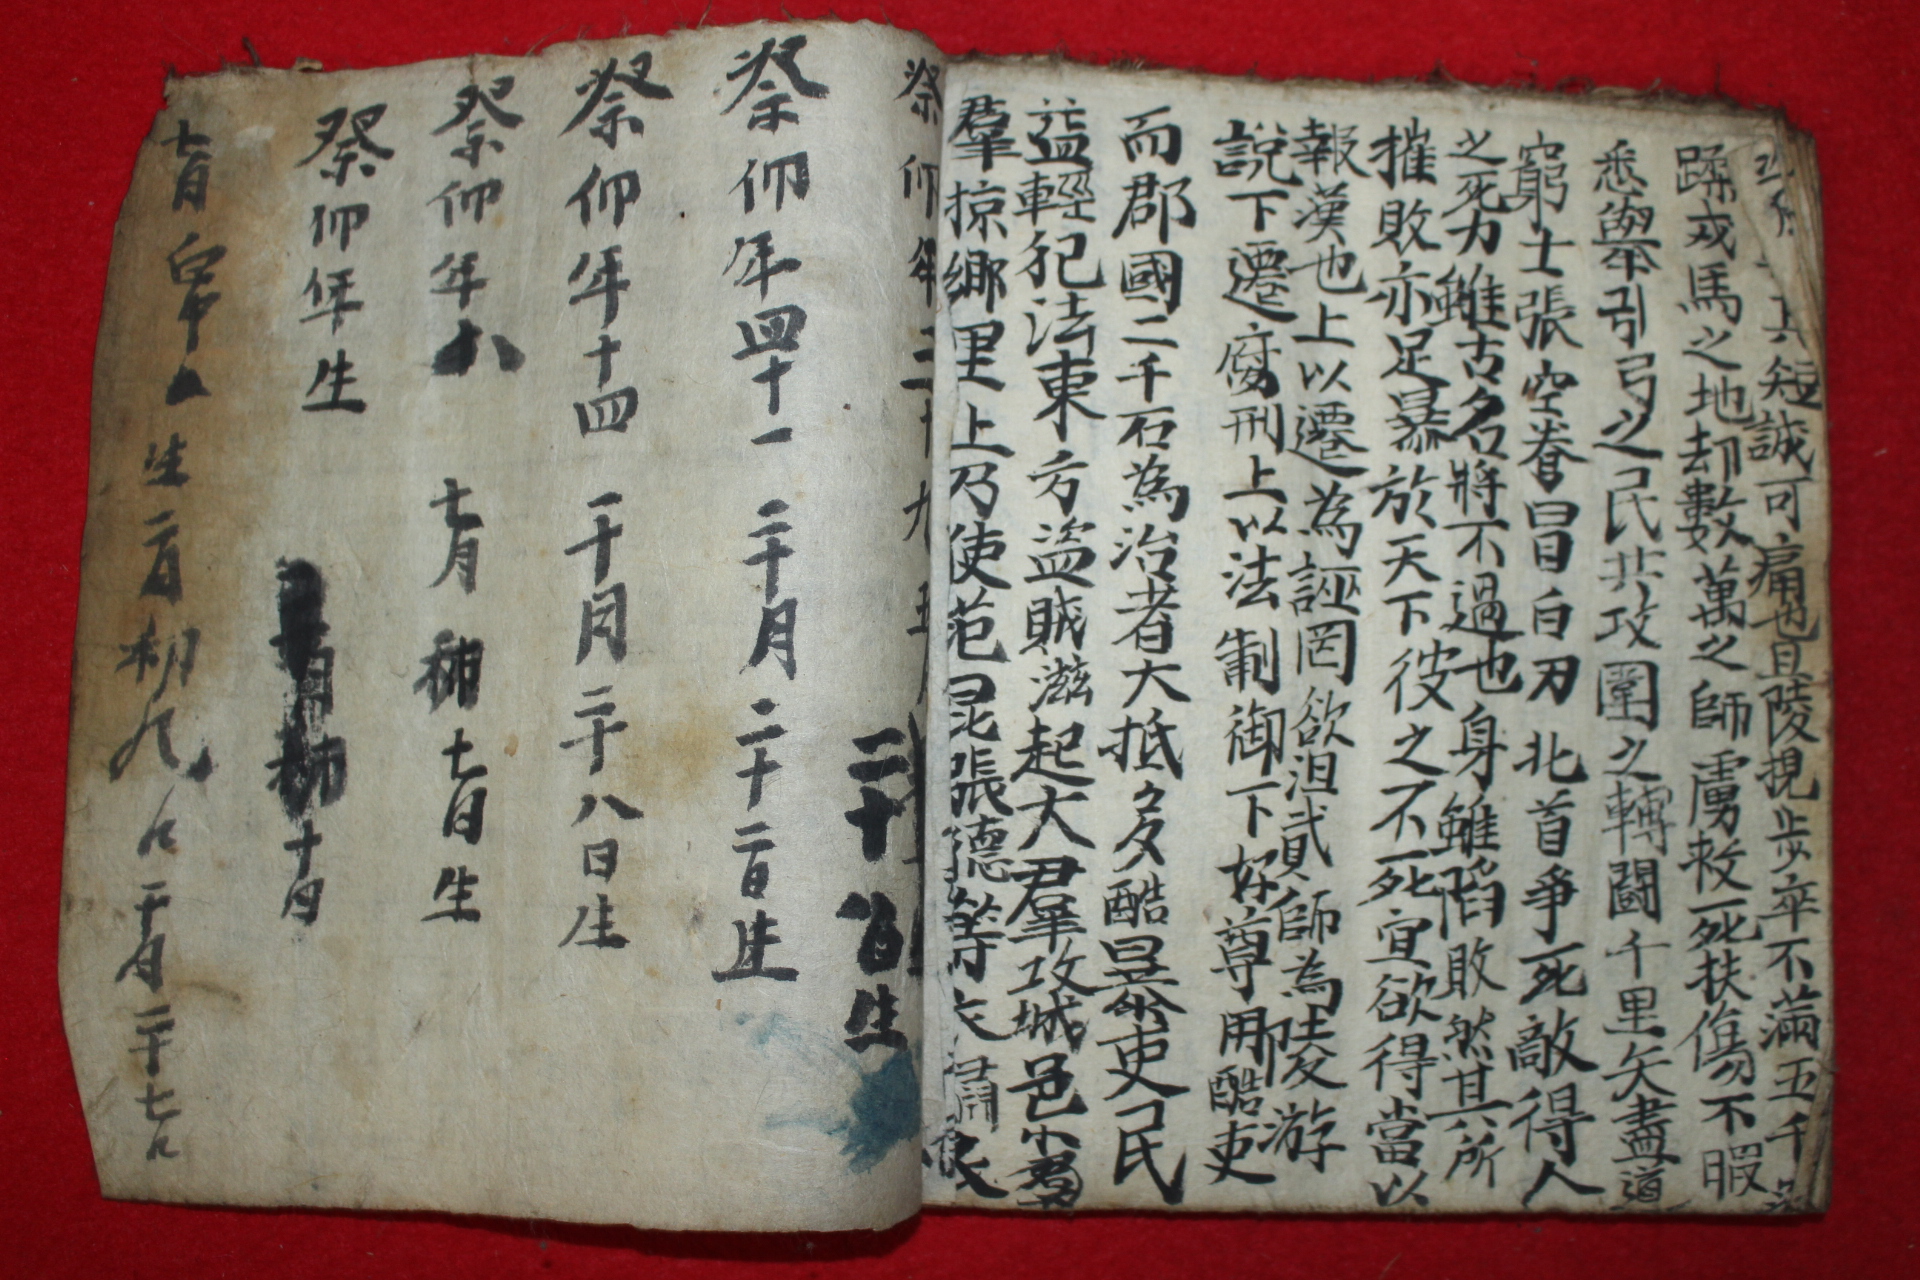 其短誠可痛也且陵提步卒不滿五千
蹂戎馬之地却數萬之師虜救死扶傷不暇
悉擧引弓之民共攻圍之轉闘千里矢盡道
窮士張空弮冒白刃北首爭死敵得人
之死力雖古名將不過也身雖陷敗然其所
摧敗亦足暴於天下彼之不死宜欲得當以
報漢也上以遷為誣罔欲沮貳師為陵游
說下遷腐刑上以法制御下好尊用酷吏
而郡國二千石為治者大抵多酷暴吏民
益輕犯法東方盜賊滋起大群攻城邑小羣
羣掠鄉里上乃使范昆張德等衣繡衣
二十 生
祭仰年四十一 二十月二十二日生
祭仰年十四 十月二十八日生
祭仰年 七月 初七日生
祭仰年生 十月
七月 生 初九 二十七